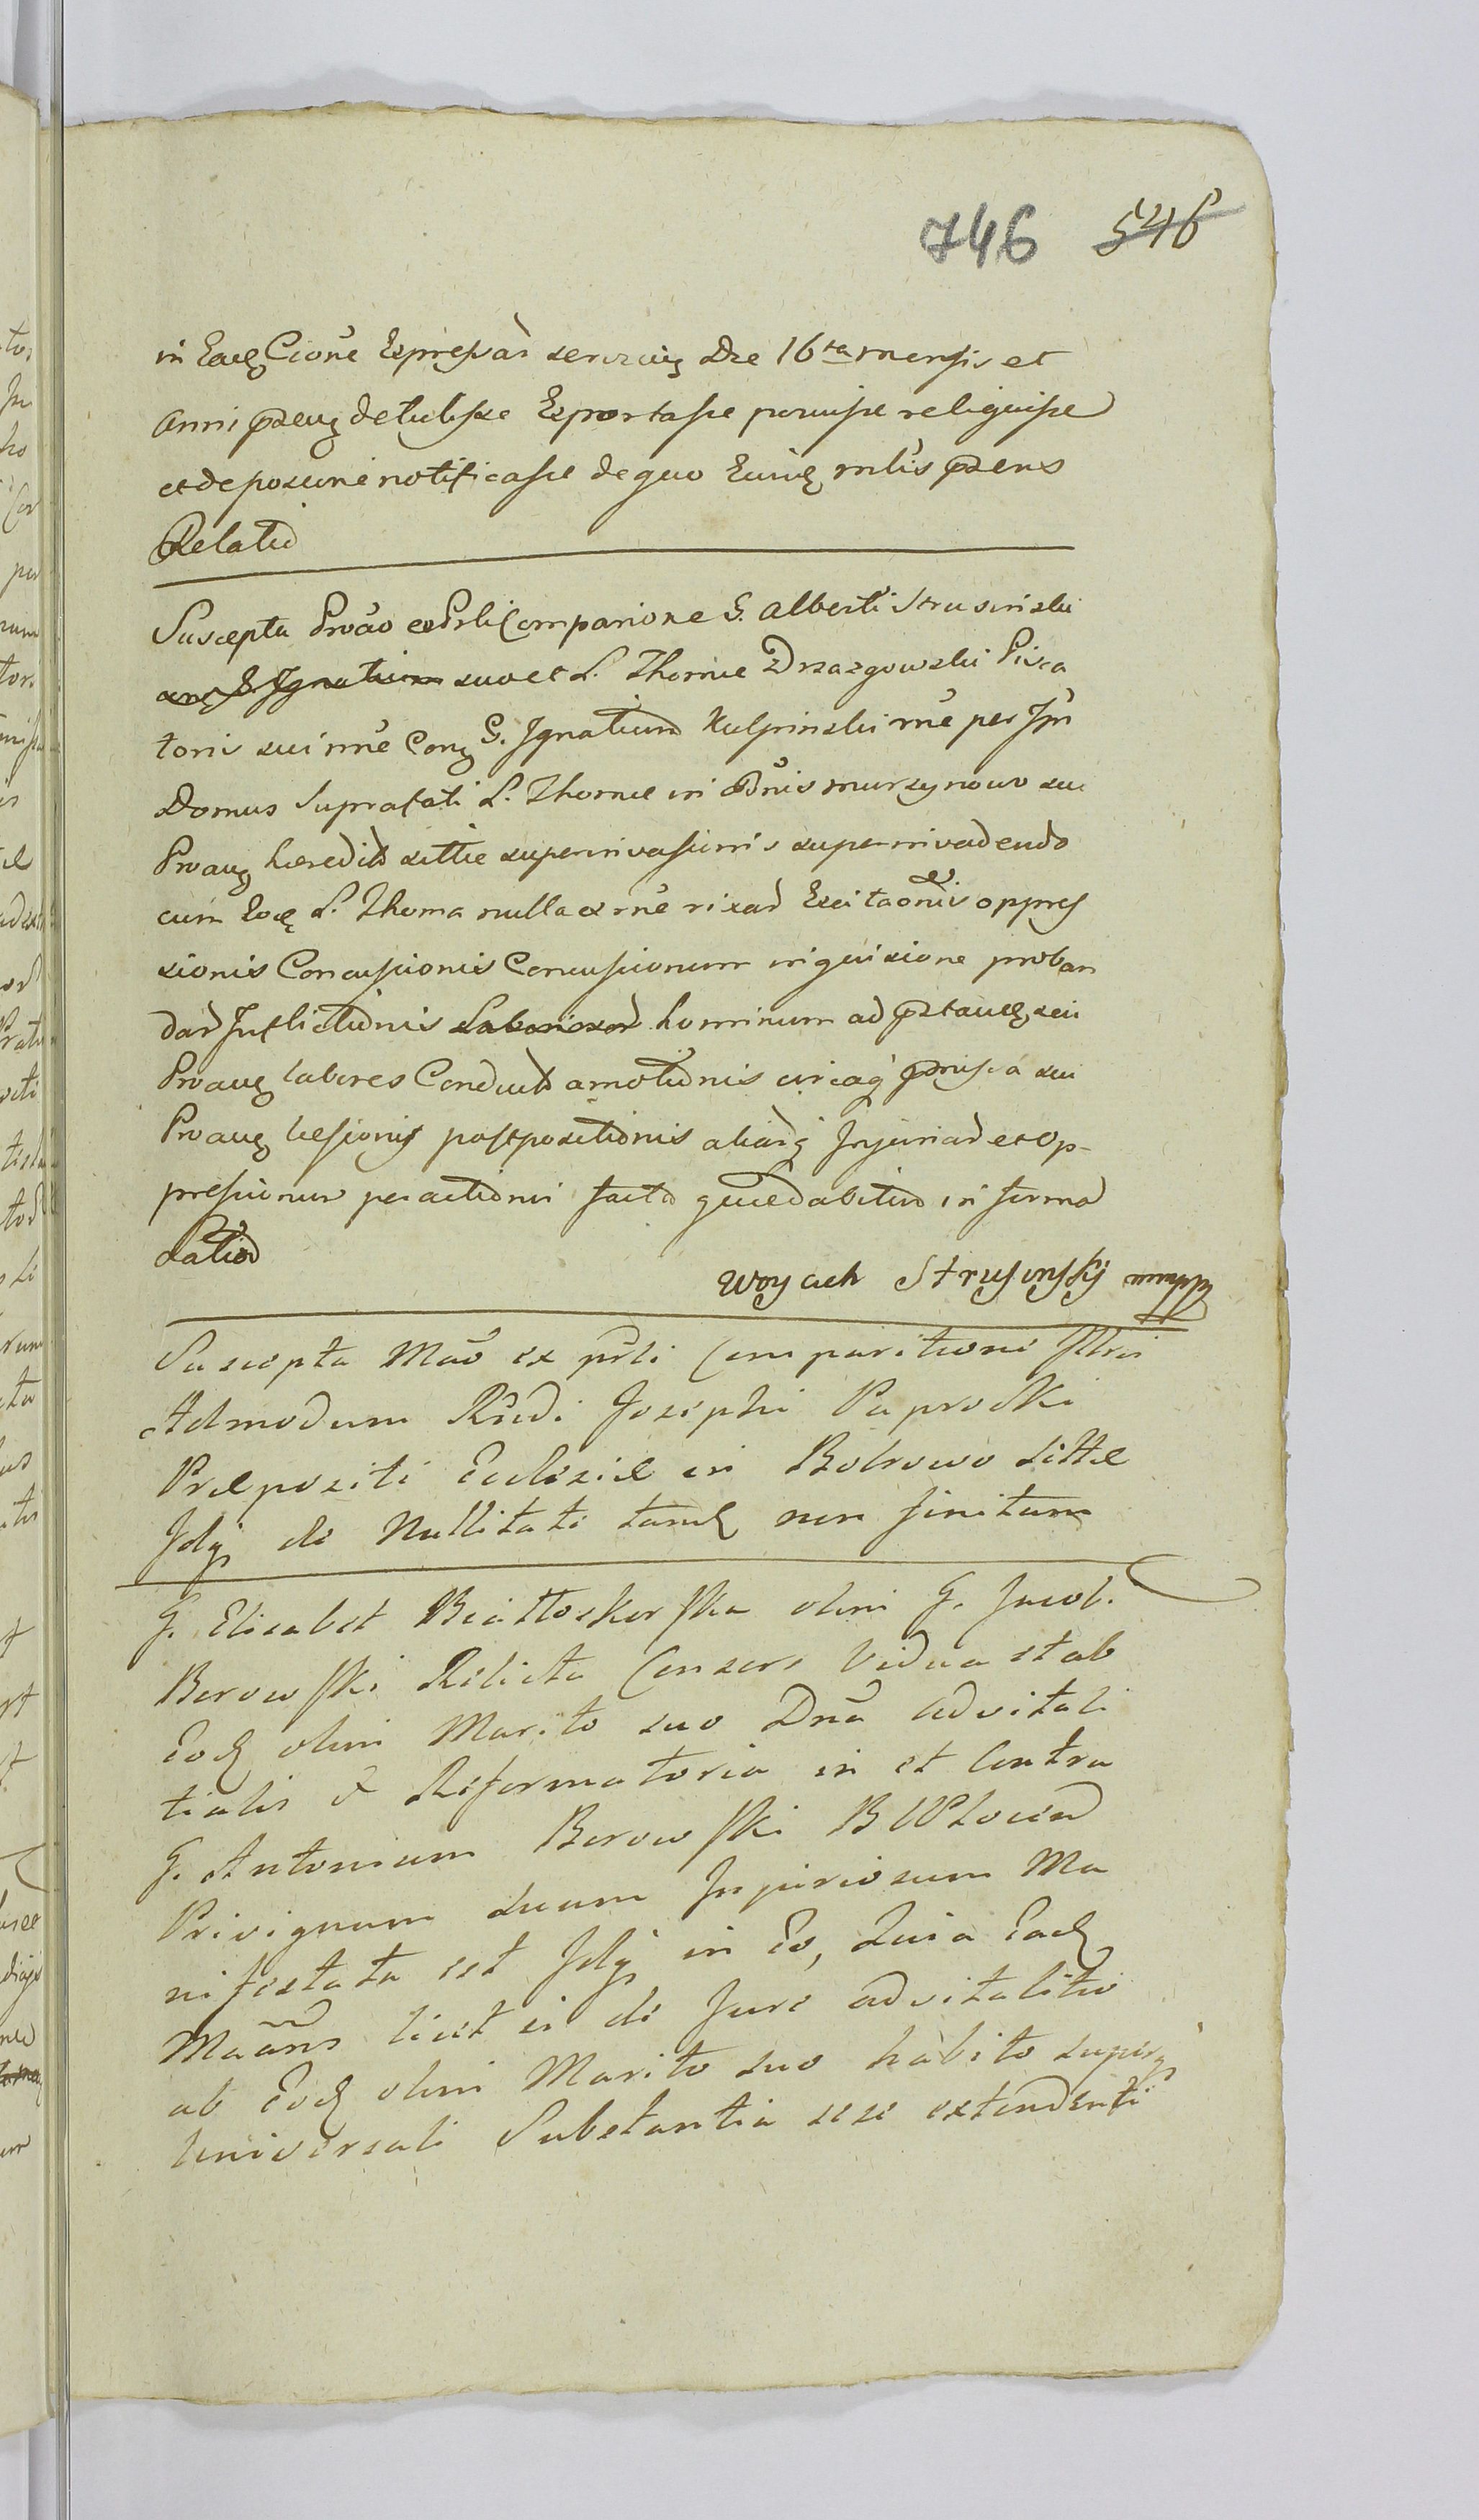 746 546
in Eadę Cione Expressar serviens Die 16ta mensis et
Anni przeuę detulisse Exportasse posuisse reliquisse
et de positione notificasse de quo Eiusdę mlis przens
Relatio
Suscepta Proao ex Prli Comparione G. Alberti Strusinski
G. Ignatium suo et L. Thomae Drzazgowski Pisca
toris sui nne Conę G. Ignatium Kulpinski nne per Ipm
Domus Suprafati L. Thomae in Bonis Murzynowo sui
Proaną haeredit sittae superinvasionis super invadendo
cum Eodę L. Thoma nulla ex nne rixar Excitaonis oppres
sionis Concussionis Concussionum inquisione proban
dar Inflictionis Laboriosor hominum ad przstandę sui
Proaną labores Conduct amotionis circaq przmissa sui
Proaną laesionis postpositionis aliarq Injuriar et Op-
pressionum peractionis facto quae dabitur in forma
latiori
Woyciech Strusinskj mppa
Suscepta Mao ex prli Comparitione Illris
Admodum Rndi Josephi Paprocki
Praepositi Ecclesiae in Bobrowo sittae
Idq de Nullitate tandę non finitum
G. Elisabet Białłoskorska olim G. Jacob.
Borowski Relicta Consors Vidua et ab
Eodę olim Marito suo Dna advitali
tialis & Reformatoria in et Contra
G. Antonium Borowski
Privignum suum Injuriosum Ma
nifestata est Idq in Eo, Quia Eadę
Maans licet ei de Jure advitalitio
ab Eodę olim Marito suo habito superq
Universali Substantia sese extendenti